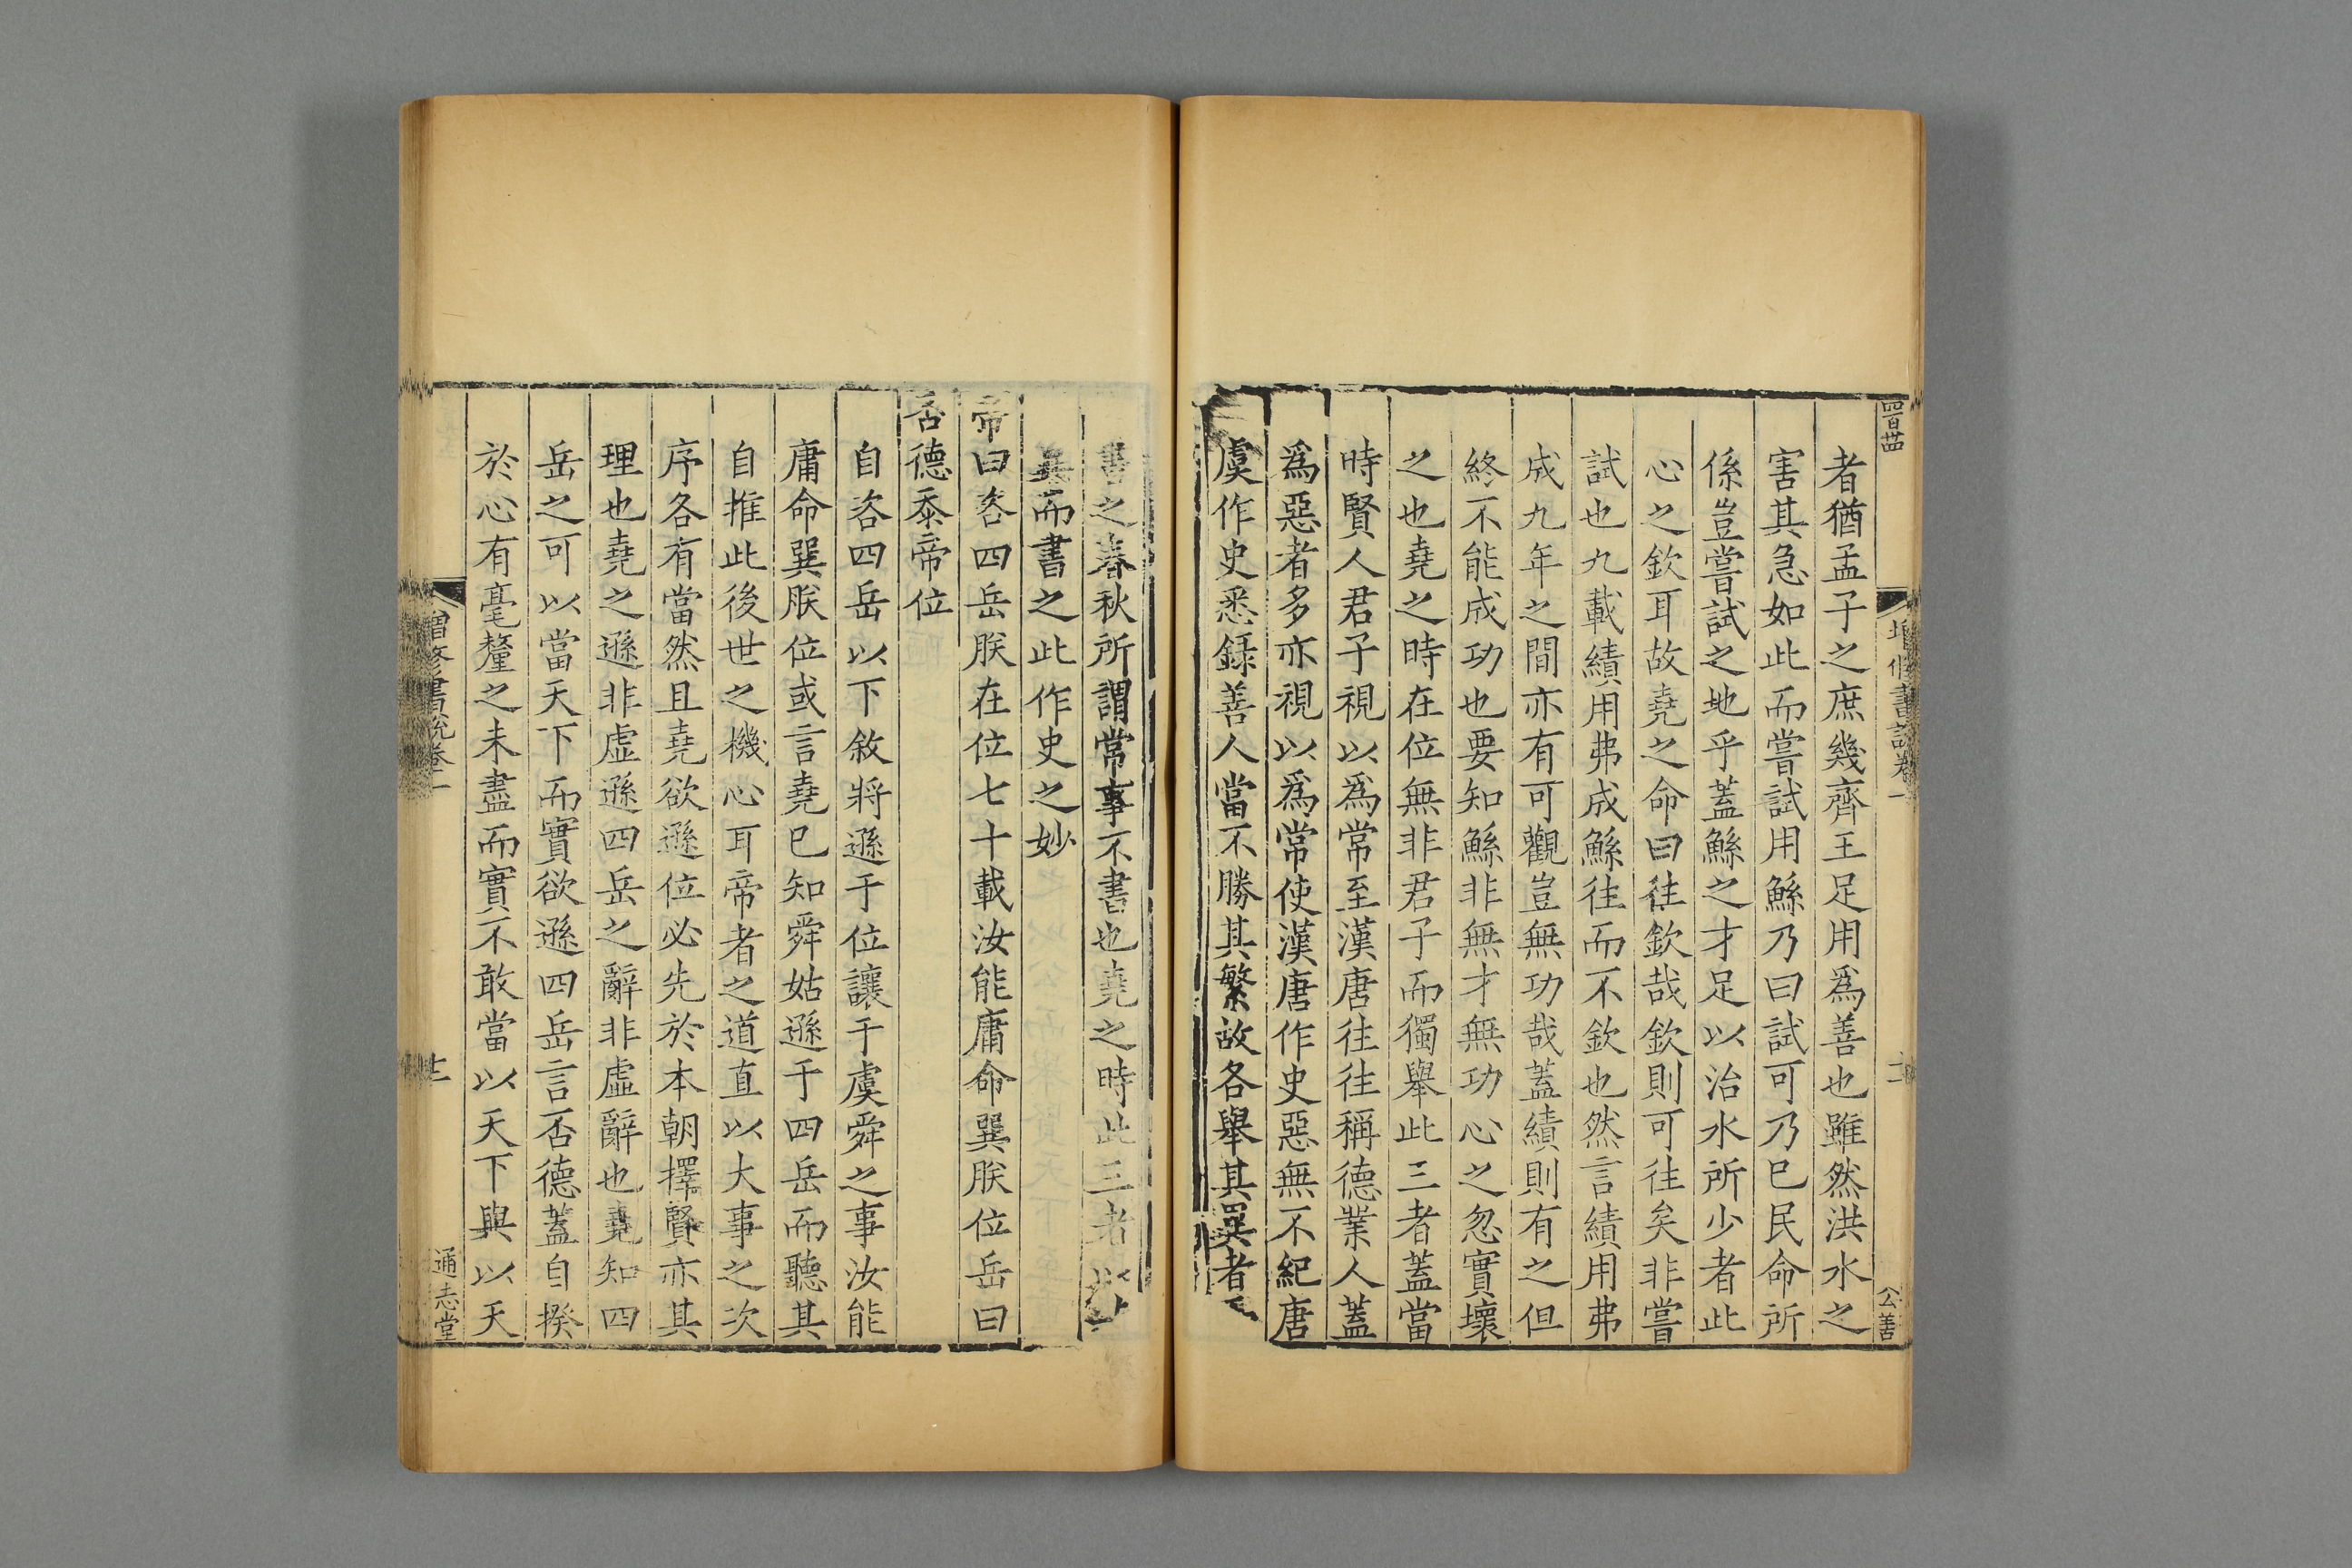 者猶孟子之庶幾齊王足用爲善也雖然洪水之
害其急如此而嘗試用鯀乃曰試可乃巳民命所
係豈嘗試之地乎蓋鯀之才足以治水所少者此
心之欽耳故堯之命曰往欽哉欽則可往矣非嘗
試也九載績用弗成鯀往而不欽也然言績用弗
成九年之間亦有可觀豈無功哉蓋績則有之但
終不能成功也要知鯀非無才無功心之忽實壞
之也堯之時在位無非君子而獨舉此三者蓋當
時賢人君子視以爲常至漢唐往往稱德業人蓋
爲惡者多亦視以爲常使漢唐作史惡無不紀唐
虞作史悉録善人當不勝其繁故各舉其異者
書之春秋所謂常事不書也堯之時此三者以
異而書之此作史之妙
帝曰咨四岳朕在位七十載汝能庸命巽朕位岳曰
否德忝帝位
自咨四岳以下敘將遜于位讓于虞舜之事汝能
庸命巽朕位或言堯巳知舜姑遜于四岳而聽其
自推此後世之機心耳帝者之道直以大事之次
序各有當然且堯欲遜位必先於本朝擇賢亦其
理也堯之遜非虛遜四岳之辭非虛辭也堯知四
岳之可以當天下而實欲遜四岳言否德蓋自揆
於心有毫釐之未盡而實不敢當以天下與以天
增修書説卷一
通志堂
公善